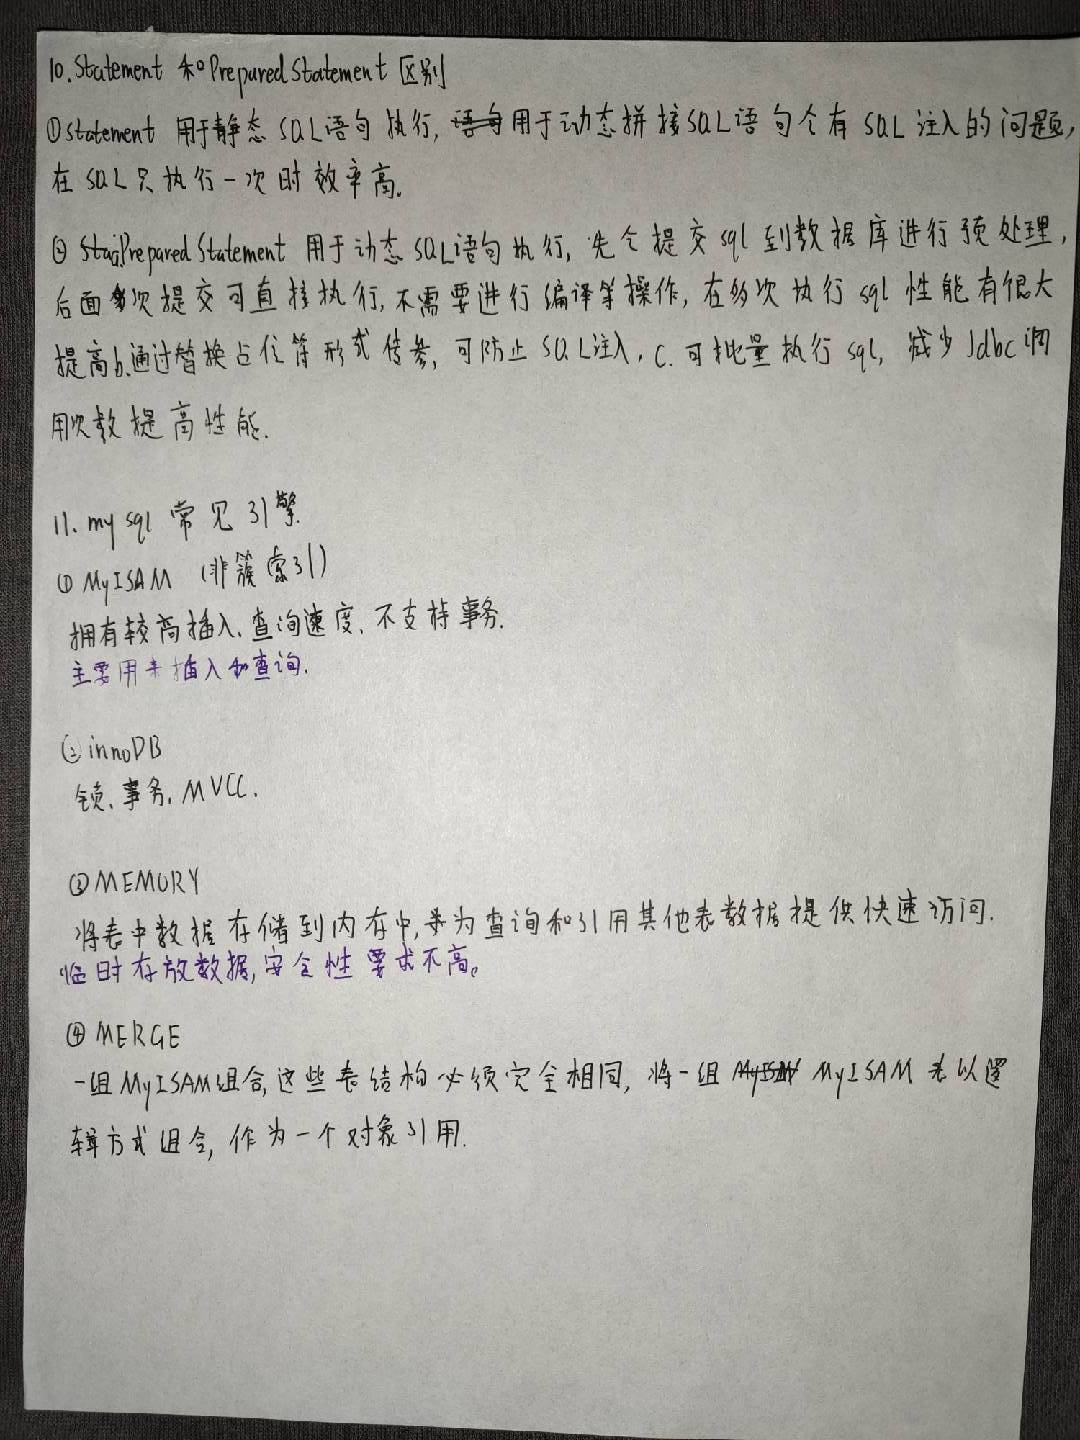 10. Statement 和 PreparedStatement 区别
①statement 用于静态 SQL语句 执行, 用于动态拼接SQL语句会有 SQL 注入的问题,
在 SQL 只执行一次时效率高.
② PreparedStatement 用于动态SQL语句执行, 先会提交 sql 到数据库进行预处理,
后面多次提交可直接执行, 不需要进行编译等操作, 在多次执行 sql 性能有很大
提高 b.通过替换占位符形式传参, 可防止 SQL注入, c. 可批量执行 sql, 减少 Jdbc 调
用次数提高性能.
11. mysql 常见引擎
① MyISAM (非簇索引)
拥有较高插入、查询速度、不支持事务.
主要用来插入和查询.
② innoDB
锁、事务. MVCC.
③ MEMORY
将表中数据存储到内存中, 为查询和引用其他表数据提供快速访问.
临时存放数据, 安全性要求不高。
④ MERGE
一组 MyISAM组合, 这些表结构必须完全相同, 将一组 MyISAM 表以逻
辑方式组合, 作为一个对象引用.